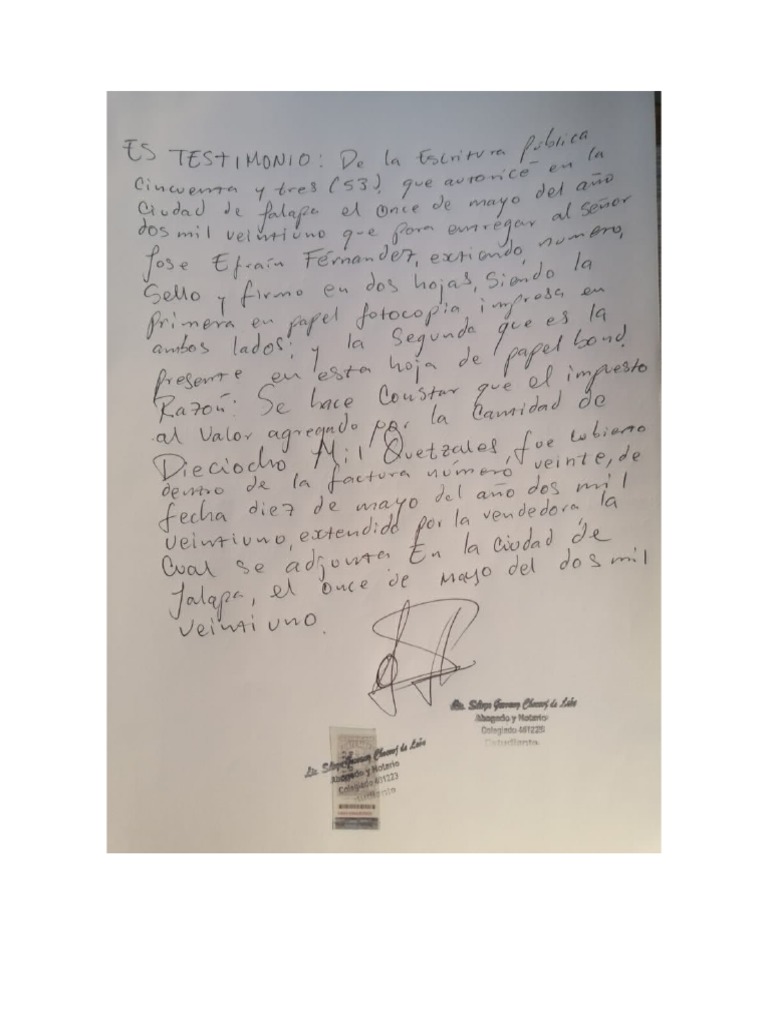 ES TESTIMONIO: De la Escritura Pública
Cincuenta y tres (53) que autoricé en la
Ciudad de Jalapa el once de mayo del año
dos mil veintiuno que para entregar al señor
Jose Efraín Férnandez, extiendo, numero,
Sello y firmo en dos hojas, Siendo la
primera en papel fotocopia impresa en
ambos lados; y la Segunda que es la
presente en esta hoja de papel bond.
Razoń: Se hace Constar que el impuesto
al Valor agregado por la Cantidad de
Dieciocho Mil Quetzales, fue cubierto
dentro de la factura número veinte, de
fecha diez de mayo del año dos mil
veintiuno, extendido por la vendedora, la
Cual se adjunta. En la Ciudad de
Jalapa, el once de mayo del dos mil
veintiuno.
Abogado y Notario
Colegiado
Estudiante
Abogado y Notario
Colegiado 401223